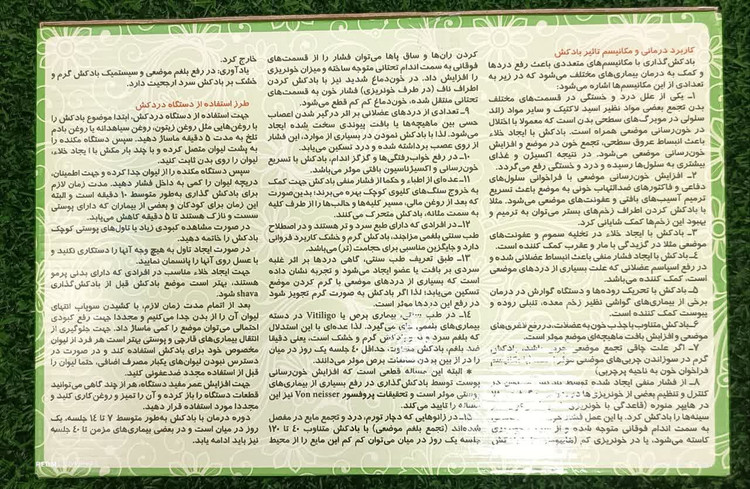 کاربرد درمانی و مکانیسم تاثیر بادکش
بادکش‌گذاری با مکانیسم‌های متعددی باعث رفع دردها
و کمک به درمان بیماری‌های مختلف می‌شود که در زیر به
تعدادی از این مکانیسم‌ها اشاره می‌شود:
۱ـ یکی از علل درد و خستگی در قسمت‌های مختلف
بدن تجمع بعضی مواد نظیر اسید لاکتیک و سایر مواد زائد
سلولی در مویرگ‌های سطحی بدن است که معمولا با اختلال
در خون‌رسانی موضعی همراه است. بادکش با ایجاد خلاء
باعث انبساط عروق سطحی، تجمع خون در موضع و افزایش
خون‌رسانی موضعی می‌شود. در نتیجه اکسیژن و غذای
بیشتری به سلول‌ها رسیده و درد و خستگی رفع می‌گردد.
۲ـ افزایش خون‌رسانی موضعی با فراخوانی سلول‌های
دفاعی و فاکتورهای ضدالتهاب خونی به موضع باعث تسریع
ترمیم آسیب‌های بافتی و عفونت‌های موضعی می‌شود. مثلا
با بادکش کردن اطراف زخم‌های بستر می‌توان به ترمیم و
بهبود این زخم‌ها کمک شایانی کرد.
۳ـ بادکش با ایجاد خلاء در تخلیه سموم و عفونت‌های
موضعی مثلا در گزیدگی با مار و عقرب کمک کننده است.
۴ـ بادکش با ایجاد فشار منفی باعث انبساط عضلانی شده و
در رفع اسپاسم عضلانی که علت بسیاری از دردهای موضعی
است، کمک کننده می‌باشد.
۵ـ بادکش با تحریک روده‌ها و دستگاه گوارش در درمان
برخی از بیماری‌های گوارشی نظیر زخم معده، تنبلی روده و
یبوست کمک کننده است.
۶ـ بادکش متناوب با جذب خون به عضلات، در رفع لاغری‌های
موضعی و افزایش بافت ماهیچه‌ای موضع موثر است.
۷ـ اگر علت چاقی تجمع موضعی چربی باشد، بادکش
گرم در سوزاندن چربی‌های موضعی موثر
فراخوان خون به ناحیه پرچربی)
۸ـ از فشار منفی ایجاد شده توسط بادکش
کنترل و تنظیم بعضی از خونریزی‌ها
در هایپر منوره (قاعدگی با خونریزی
سینه‌ها را بادکش کرد. با این عمل فشار خون
به سمت اندام فوقانی متوجه شده و از
کاسته می‌شود. یا در خونریزی کم
کردن ران‌ها و ساق پاها می‌توان فشار را از قسمت‌های
فوقانی به سمت اندام تحتانی متوجه ساخته و میزان خونریزی
را افزایش داد. در خون‌دماغ شدید نیز با بادکش کردن
اطراف ناف (در طرف خونریزی) فشار خون به قسمت‌های
تحتانی منتقل شده، خون‌دماغ کم کم قطع می‌شود.
۹ـ تعدادی از دردهای عضلانی بر اثر درگیر شدن اعصاب
حسی بین ماهیچه‌ها یا بافت پیوندی سخت شده ایجاد
می‌شود. لذا با بادکش نمودن در بسیاری از موارد، این فشار
از روی عصب برداشته شده و درد تسکین می‌یابد.
۱۰ـ در رفع خواب‌رفتگی‌ها و گزگز اندام، بادکش با تسریع
خونرسانی و اکسیژناسیون بافتی موثر می‌باشد.
۱۱ـ عده‌ای از اطباء و حکما از فشار منفی بادکش جهت کمک
به خروج سنگ‌های کلیوی کوچک بهره می‌برند؛ بدین‌صورت
که بعد از روغن مالی، مسیر کلیه‌ها و حالب‌ها را از طرف کلیه
به سمت مثانه، بادکش متحرک می‌کنند.
۱۲ـ در افرادی که دارای طبع سرد و تر هستند و در اصطلاح
طب سنتی بلغمی مزاجند، بادکش گرم و خشک کاربرد فراوانی
دارد و جایگزین مناسبی برای حجامت (تر) می‌باشد.
۱۳ـ طبق تعریف طب سنتی، گاهی دردها بر اثر غلبه
سردی بر بافت یا عضو ایجاد می‌شود و تجربه نشان داده
است که بسیاری از دردهای موضعی با گرم کردن موضع
تسکین می‌یابد، لذا اگر بادکش به صورت گرم تجویز شود
در رفع این دردها موثر است.
۱۴ـ در طب سنتی، بیماری برص یا Vitiligo در دسته
بیماری‌های بلغمی جای می‌گیرد. لذا عده‌ای با این استدلال
که بلغم سرد و تر و بادکش گرم و خشک است، یعنی دقیقا
ضد بلغم، بادکش متفاوت، حداقل ۴۰ جلسه یک روز در میان
را در از بین بردن ضایعات برص موثر می‌دانند.
* البته این مساله قطعی است که افزایش خون‌رسانی
پوست توسط بادکش‌گذاری در رفع بسیاری از بیماری‌های
پوستی موثر است و تحقیقات پروفسور Von neisser نیز این
مساله را تایید می‌کند.
۱۵ـ در زانوهایی که دچار تورم، درد و تجمع مایع در مفصل
شده‌اند (تجمع بلغم موضعی) با بادکش متناوب ۴۰ تا ۱۲۰
جلسه یک روز در میان می‌توان کم کم این مایع را از محیط
خارج کرد.
یادآوری: در رفع بلغم موضعی و سیستمیک بادکش گرم و
خشک بر بادکش سرد ارجحیت دارد.
طرز استفاده از دستگاه دردکش
جهت استفاده از دستگاه دردکش، ابتدا موضوع بادکش را
با روغن‌هایی مثل روغن زیتون، روغن سیاهدانه یا روغن بادام
تلخ به مدت ۵ دقیقه ماساژ دهید. سپس دستگاه مکنده را
به پشت لیوان متصل کرده و با چند بار مکش با ایجاد خلاء،
لیوان را روی بدن ثابت کنید.
سپس دستگاه مکنده را از لیوان جدا کرده و جهت اطمینان،
دریچه لیوان را کمی به داخل فشار دهید. مدت زمان لازم
برای بادکش گذاری به‌طور متوسط ۱۰ دقیقه است و البته
این زمان برای کودکان و بعضی از بیماران که دارای پوستی
سست و نازک هستند تا ۵ دقیقه کاهش می‌یابد.
در صورت مشاهده کبودی زیاد یا تاول‌های پوستی کوچک
بادکش را خاتمه دهید.
در صورت ایجاد تاول به هیچ وجه آنها را دستکاری نکنید و
با عسل روی آنها را پانسمان نمایید.
جهت ایجاد خلاء مناسب در افرادی که دارای بدنی پرمو
هستند، بهتر است موضع بادکش قبل از بادکش‌گذاری
shava شود.
بعد از اتمام مدت زمان لازم، با کشیدن سوپاپ انتهای
لیوان آن را از بدن جدا می‌کنیم و مجددا جهت رفع کبودی
احتمالی می‌توان موضع را کمی ماساژ داد. جهت جلوگیری از
انتقال بیماری‌های قارچی و پوستی بهتر است هر فرد از لیوان
مخصوص خود برای بادکش استفاده کند و در صورت در
دسترس نبودن لیوان‌های یکبار مصرف اضافی، حتما لیوان را
قبل از استفاده مجدد ضدعفونی کنید.
جهت افزایش عمر مفید دستگاه، هر از چند گاهی می‌توانید
قطعات دستگاه را باز کرده و آن را تمیز و روغن‌کاری کنید و
مجددا مورد استفاده قرار دهید.
دوره درمان با بادکش به‌طور متوسط ۷ تا ۱۴ جلسه، یک
روز در میان است و در بعضی بیماری‌های مزمن تا ۴۰ جلسه
نیز باید ادامه یابد.